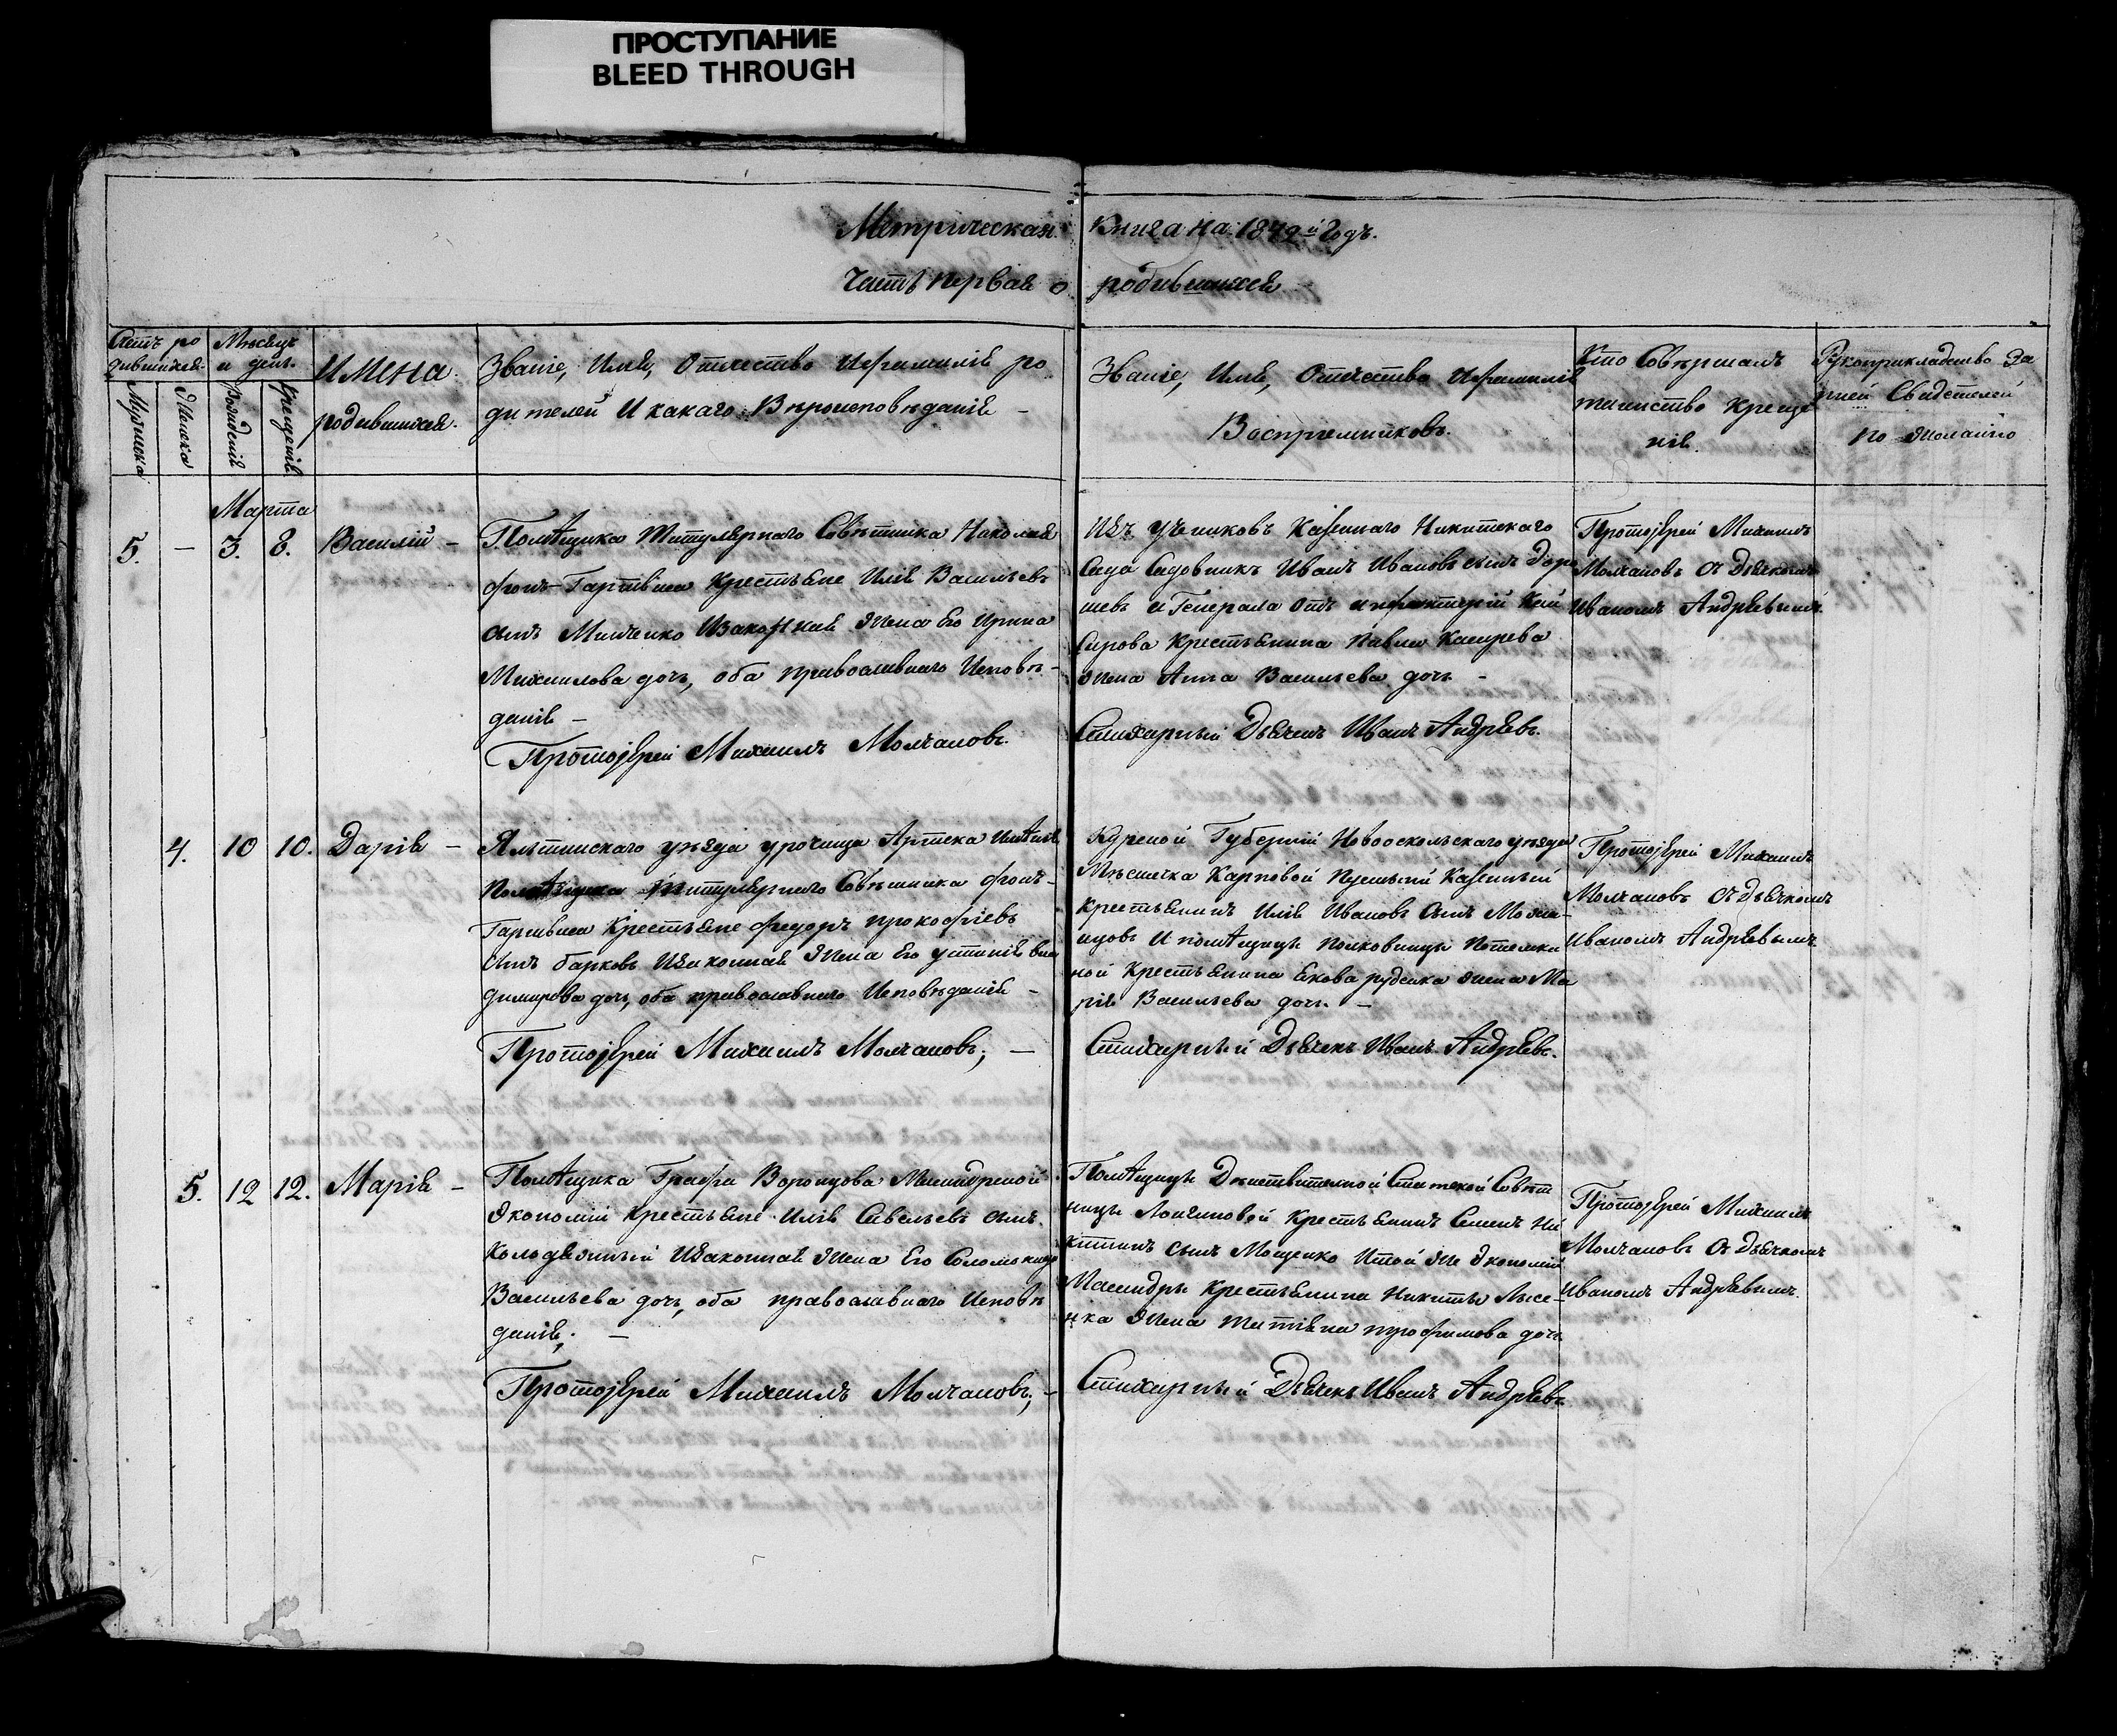 ПРОСТУПАНИЕ
BLEED THROUGH
Метрическая Книга на 1849й Годъ.
Часть первая о родившихся
Счетъ ро
дившихся.
Мужеска
Женска
Мѣсяцъ
и день.
Рожденія
Крещенія
Имена
родившихся.
Званіе, Имя, Отчество И фамилія ро
дителей И какаго Вѣроисповѣданія –
Званіе, Имя, Отчество И фамилія
Воспріемниковъ.
Кто Совѣршалъ
таинство Креще
нія.
Рукоприкладство За
писи Свидетелей
по желанію
Марта
5. – 3. 8. Василій –
Помѣщика Титулярнаго Совѣтника Николая
фонъ-Гартвиса Крестьяне Илія Васильевъ
сынъ Минченко И законная жена Его Ирина
Михаилова дочь, оба православнаго Исповѣ-
данія –
Протоіерей Михаилъ Молчановъ.
Изъ учениковъ Казеннаго Никитскаго
Сада Садовникъ Иванъ Ивановъ сынъ
шевъ и Генерала отъ инфантеріи
Крестьянина Павла
жена Анна Васильева дочь –
Стихарный Дьячекъ Иванъ Андрѣевъ.
Протоіерей Михаилъ
Молчановъ Съ Дьячкомъ
Иваномъ Андрѣевымъ.
4. 10 10. Дарія –
Ялтинскаго уѣзда урочища Артека имѣнія
Помѣщика Титулярнаго Совѣтника фонъ-
Гартвиса Крестьяне Федоръ Прокофіевъ
сынъ Барковъ И законная жена Его Устинія Вла
димирова дочь, оба православнаго Исповѣданія –
Протоіерей Михаилъ Молчановъ; –
Курской Губерніи Новооскольскаго уѣзда
Мѣстечка Карповой Казенный
Крестьянинъ Илія Ивановъ Сынъ
И помѣщицы полковницы Потемки
ной Крестьянина Якова жена Ма
рія Васильева дочь. –
Стихарный Дьячекъ Иванъ Андрѣевъ.
Протоіерей Михаилъ
Молчановъ Съ дьячкомъ
Иваномъ Андрѣевымъ
5. 12 12. Марія –
Помѣщика Графа Воронцова Масандрской
Экономіи Крестьяне Илія Савельевъ сынъ
Колодяжный И законная жена Его Соломонида
Васильева дочь, оба православнаго Исповѣ
данія; –
Протоіерей Михаилъ Молчановъ; –
Помѣщицы Дѣйствительной Статской Совѣт
ницы Лонгиновой Крестьянинъ Семенъ Ни
китинъ сынъ Мощенко И той же Экономіи
Масандры Крестьянина Никиты Лысе-
нка жена Татіяна Трофимова дочь
Стихарный Дьячекъ Иванъ Андрѣевъ
Протоіерей Михаилъ
Молчановъ Съ Дьячкомъ
Иваномъ Андрѣевымъ.